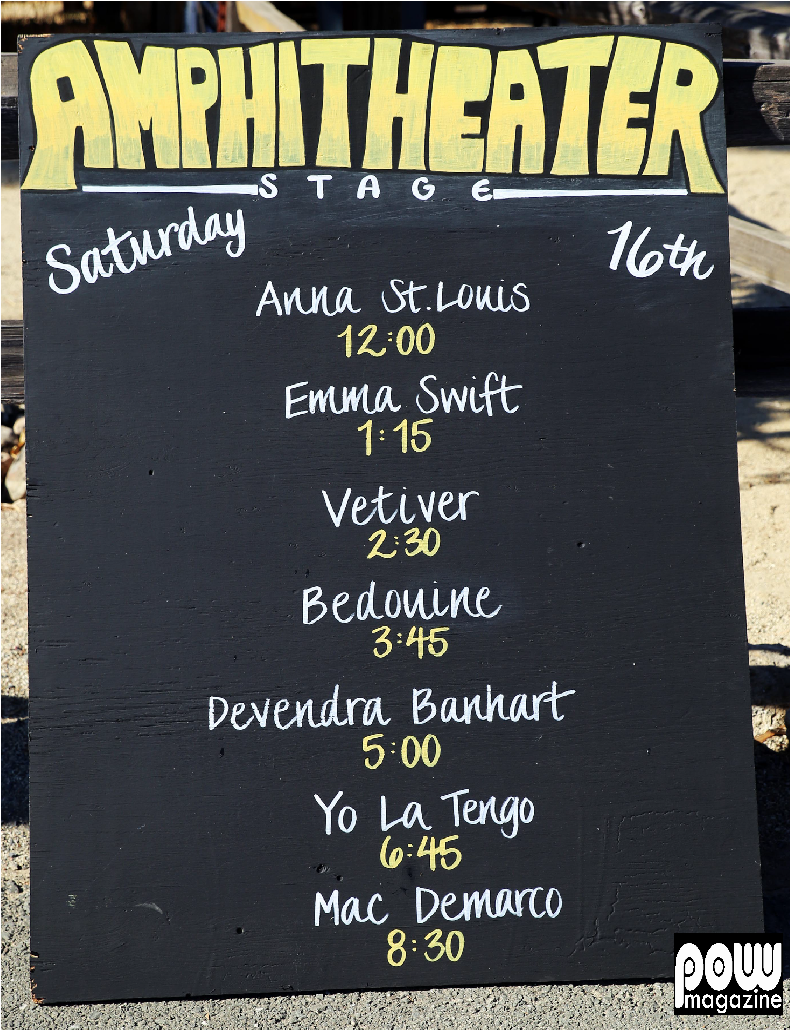 AMPHITHEATER
STAGE
Saturday 16th
Anna St. Louis
12:00
Emma Swift
1:15
Vetiver
2:30
Bedouine
3:45
Devendra Banhart
5:00
Yo La Tengo
6:45
Mac Demarco
8:30
POW
magazine